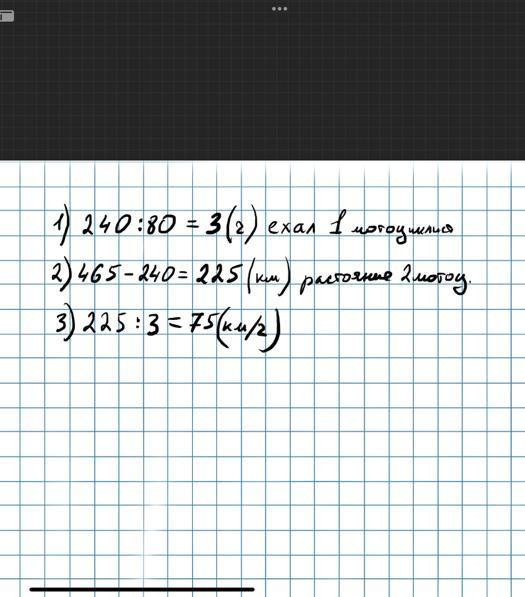 1) 240 : 80 = 3 (г) ехал 1 мотоциклист
2) 465 - 240 = 225 (км) растояние 2 мотоц.
3) 225 : 3 = 75 (км/г)